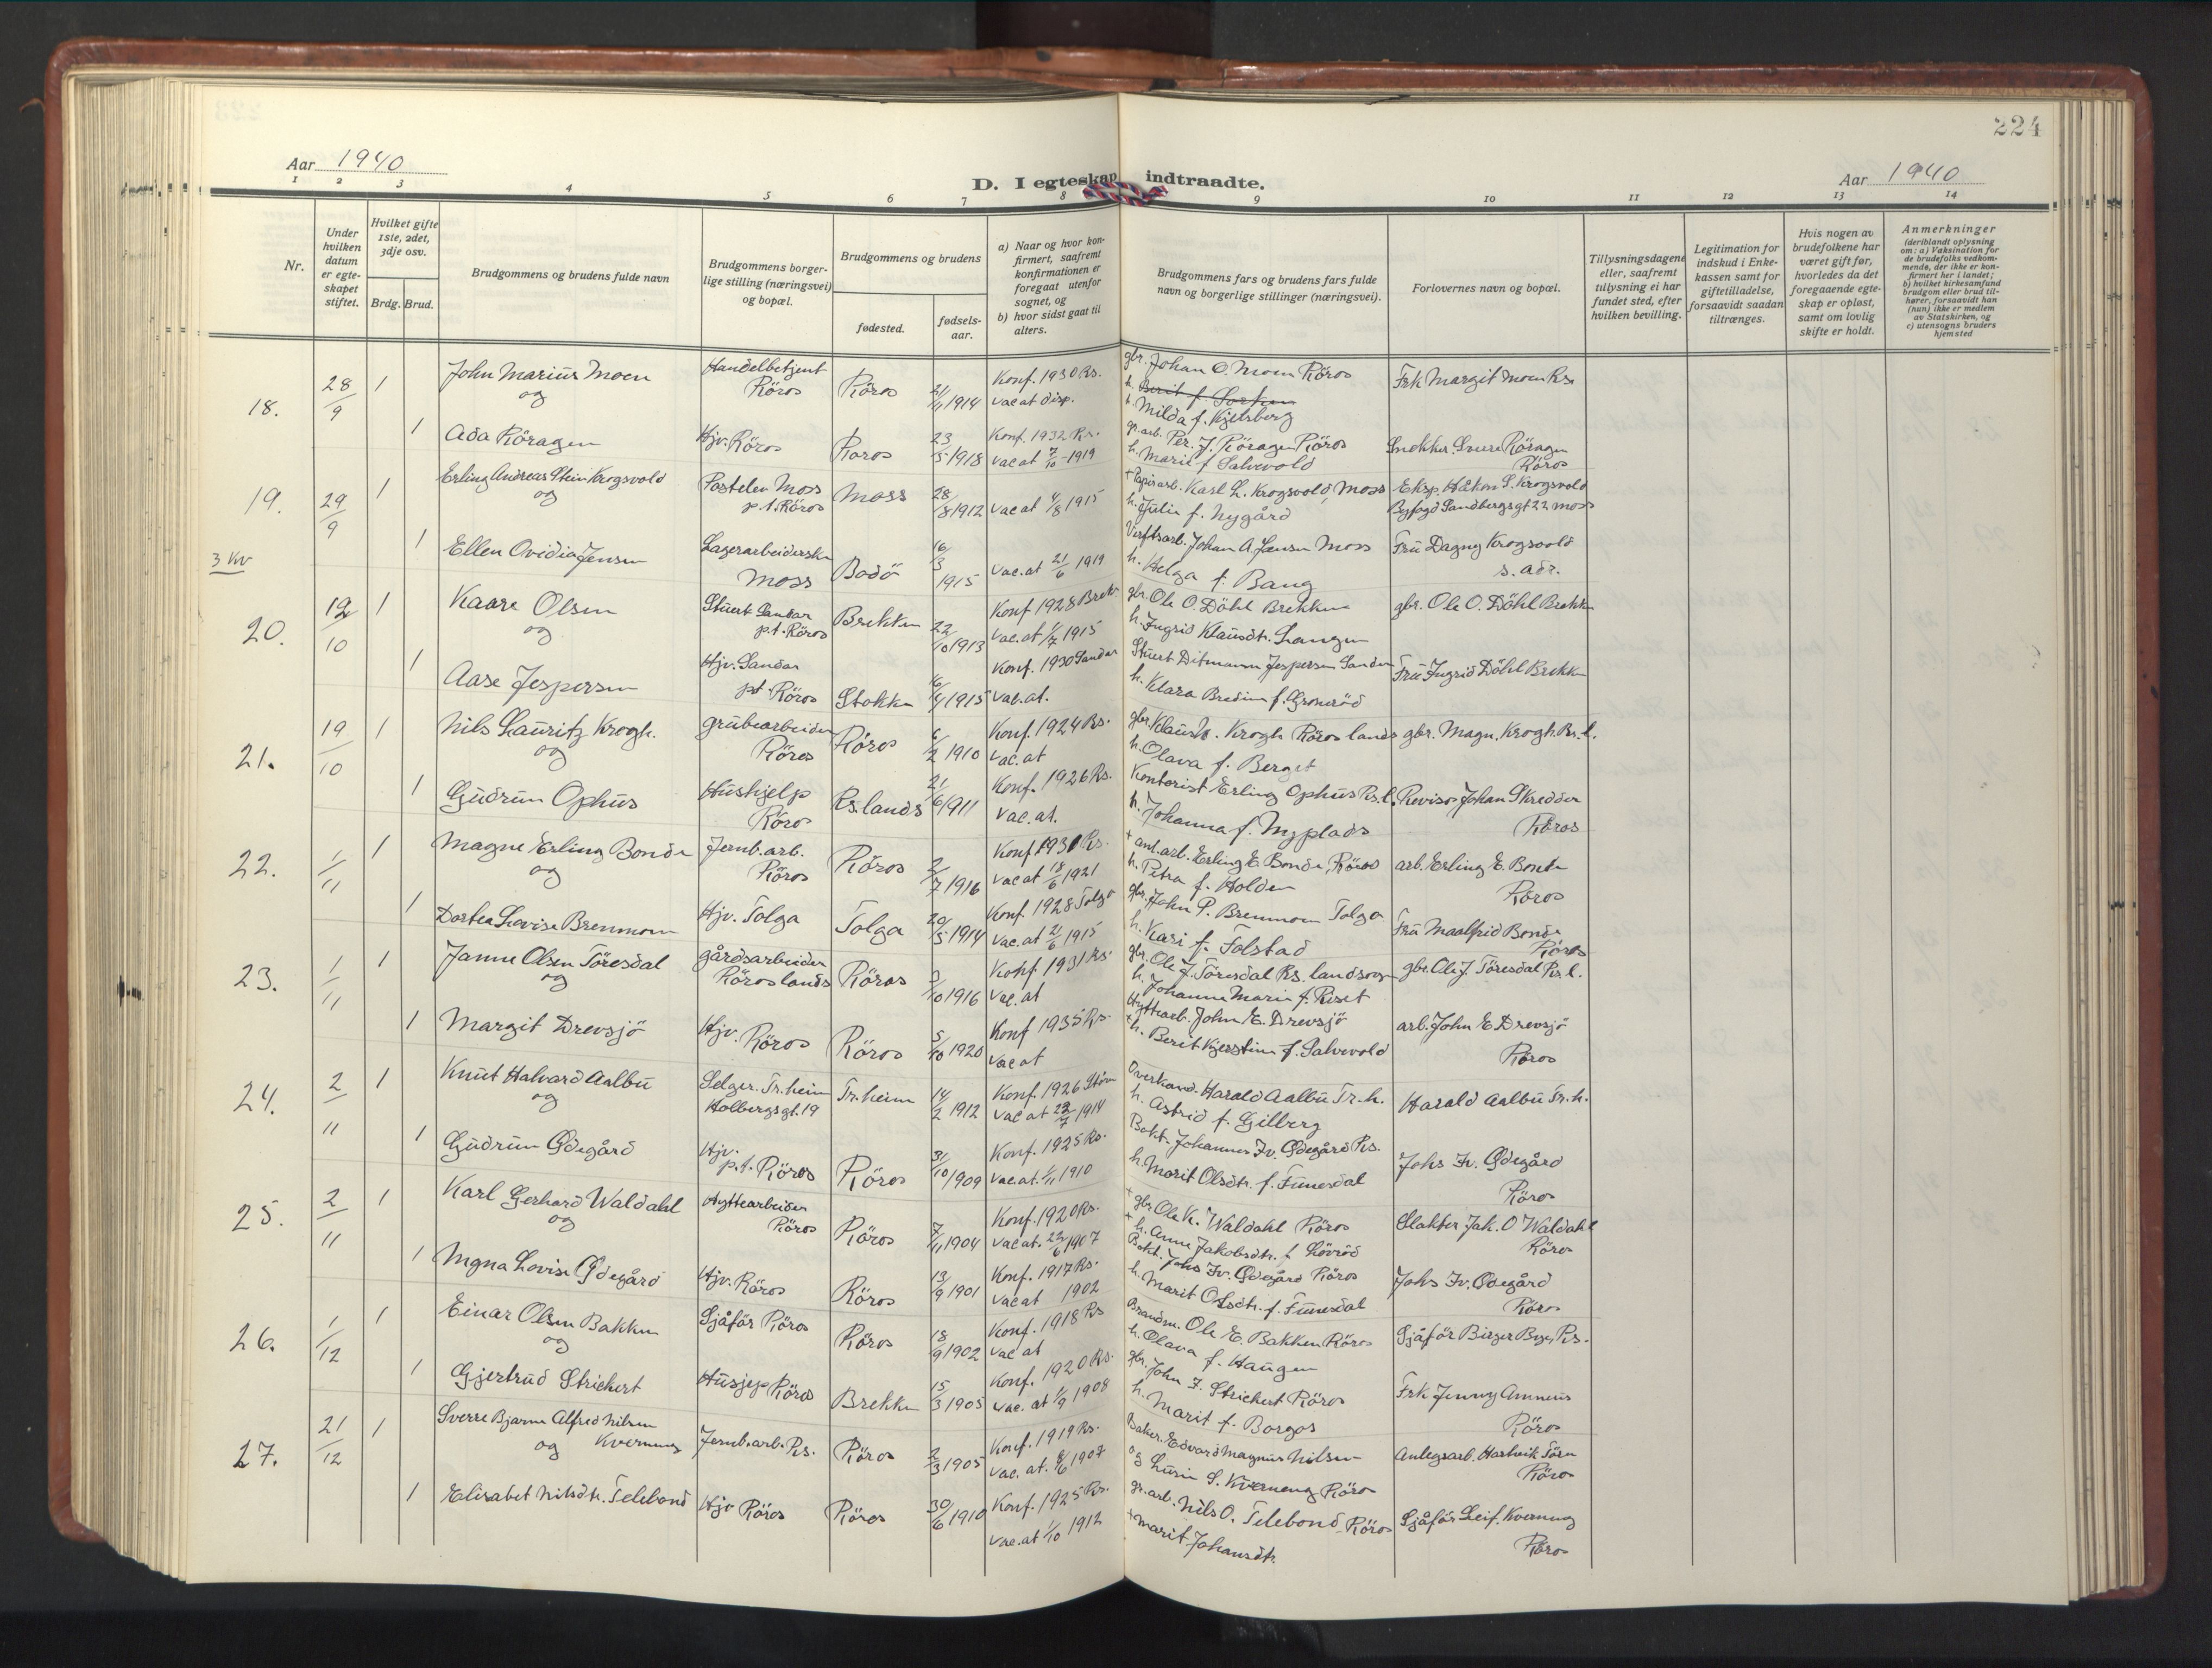 224
Aar 1940
D. I egteskap indtraadte.
Aar 1940
1 2 3 4 5 6 7 8 9 10 11 12 13 14
Nr.
Under hvilken datum er egteskapet stiftet.
Hvilket gifte 1ste, 2det, 3dje osv.
Brdg. Brud.
Brudgommens og brudens fulde navn
Brudgommens borgerlige stilling (næringsvei) og bopæl.
Brudgommens og brudens
fødested.
fødselsaar.
a) Naar og hvor konfirmert, saafremt konfirmationen er foregaat utenfor sognet, og
b) hvor sidst gaat til alters.
Brudgommens fars og brudens fars fulde navn og borgerlige stillinger (næringsvei).
Forlovernes navn og bopæl.
Tillysningsdagene eller, saafremt tillysning ei har fundet sted, efter hvilken bevilling.
Legitimation for indskud i Enkekassen samt for giftetilladelse, forsaavidt saadan tiltrænges.
Hvis nogen av brudefolkene har været gift før, hvorledes da det foregaaende egteskap er opløst, samt om lovlig skifte er holdt.
Anmerkninger
(deriblandt oplysning om: a) Vaksination for de brudefolks vedkommende, der ikke er konfirmert her i landet; b) hvilket kirkesamfund brudgom eller brud tilhører, forsaavidt han (hun) ikke er medlem av Statskirken, og c) utensogns bruders hjemsted
18. 28/9 1 John Marius Moen Handelbetjent Röros Röros 21/11 1914 Konf. 1930 Rs. vac at disp. gbr. Johan O. Moen Röros h. Milda f. Kjelsberg Frk Margit Moen Rs.
og
1 Ada Röragen Hjv. Röros Röros 23/5 1918 Konf. 1932 Rs. vac at 7/10-1919 gr. arb. Per. J. Röragen Röros h. Marie f Salvevold Snekker. Sverre Röragen Röros
19. 29/9 1 Erling Andreas Stein Krogsvold Moss p.t. Röros Moss 28/8 1912 vac at 4/8 1915 + Papirarb. Karl L. Krogsvold, Moss h. Julie f. Nygård Eksp. Håkon S. Krogsvold Byfogd Sandbergsgt 22 Moss
og
3 kv
1 Ellen Ovidia Jensen Lagerarbeiderske Moss Bodö 16/3 1915 vac. at 21/6 1919 Verftsarb. Johan A. Jensen Moss h. Helga f. Bang Fru Dagny Krogsvold s. adr.
20. 12/10 1 Kaare Olsen Stuert Sandar p.t. Röros Brekken 22/10 1913 Konf 1928 Brek. vac. at 1/7 1915 gbr. Ole O. Döhl Brekken h. Ingrid Klausdt. Langen gbr. Ole O. Döhl Brekken
og
1 Aase Jespersen Hjv. Sandar pt Röros Stokke 16/4 1915 Konf. 1930 Sandar vac. at. Stuert Ditmann Jespersen Sandar h. Klara Bredine f. Gronerød Fru Ingrid Döhl Brekken
21. 19/10 1 Nils Lauritz Krogh. grubearbeider Röros Röros 6/2 1910 Konf. 1924 Rs. vac. at gbr. Klaus . Krogh Röros lands h. Olava f. Berget gbr. Magn. Krogh. Rs. l.
og
1 Gudrun Ophus Hushjelp Röros Rs. lands 21/6 1911 Konf. 1926 Rs. vac. at. Kontorist Erling Ophus Rs. l. h. Johanna f. Nyplads Revisor Johan Skredder Röros
22. 1/11 1 Magne Erling Bonde Jernb. arb. Röros Röros 2/7 1916 Konf 1931 Rs. vac at 18/6 1921 + anl. arb. Erling E. Bonde, Röros h. Petra f. Holden arb. Erling E. Bonde Röros
og
1 Dortea Lovise Brennmoen Hjv. Tolga Tolga 20/5 1914 Konf. 1928 Tolga vac. at 21/6 1915 gbr. John P. Brennmoen Tolga h. Kari f. Tolstad Fru Maalfrid Bonde Röros
23. 1/11 1 Janne Olsen Töresdal gårdsarbeider Röros lands Röros 3/10 1916 Konf 1931 Rs. vac. at gbr. Ole J. Töresdal Rs. landsogn h. Johanna Marie f. Riset gbr. Ole J. Töresdal Rs. l.
og
1 Margit Drevsjö Hjv. Röros Röros 5/10 1920 Konf 1935 Rs. vac at Hyttearb. John E. Drevsjö + h. Berit Kjerstine f. Salvevold arb. John E Drevsjö Röros
24. 2/11 1 Knut Halvard Aalbu Selger. Tr. heim Holbergsgt. 19 Tr. heim 14/2 1912 Konf. 1926 Stören vac at 23/7 1914 Overkond. Harald Aalbu Tr. h. h. Astrid f. Gilberg Harald Aalbu Tr. h.
og
1 Gudrun Ödegård Hjv. p.t. Röros Röros 31/10 1909 Konf. 1925 Rs. vac. at. 1/11 1910 Bokt. Johannes Iv. Ödegård Rs. h. Marit Olsdt. f. Funesdal Johs Iv. Ödegård Röros
25. 2/11 1 Karl Gerhard Waldahl Hyttearbeider Röros Röros 7/11 1904 Konf. 1920 Rs. vac at. 22/6 1907 + gbr. Ole K. Waldahl Röros + h. Anne Jakobsdt. f Lövröd Slakter Jak. O Waldahl Röros
og
1 Magna Lovise Ödegård Hjv. Röros Röros 13/9 1901 Konf. 1917 Rs. vac at 1902 Bokt. Johs Iv. Ödegård Röros h. Marit Olsdt. f. Funesdal Johs Iv. Ödegård Röros
26. 1/12 1 Einar Olsen Bakken Sjåför Röros Röros 18/9 1902 Konf. 1918 Rs vac at Brandm. Ole E. Bakken Röros h. Olava f. Haugen Sjåför Birger Berg, Rs.
og
1 Gjertrud Strickert Husjep Röros Brekken 15/3 1905 Konf. 1920 Rs. vac. at 1/9 1908 gbr. John F. Strickert Röros h. Marit f. Borgos Frk Jenny Amneus Röros
27. 21/12 1 Sverre Bjarne Alfred Nilsen Kverneng Jernb. arb. Rs. Röros 2/3 1905 Konf. 1919 Rs. vac. at. 8/6 1907 Baker. Edvard Magnus Nilsen og Lusie S. Kverneng Röros Anlegsarb. Hartvik Törn Röros
og
1 Elisabet Nilsdt. Telebond Hjv Röros Röros 30/6 1910 Konf. 1925 Rs. vac. at 1/10 1912 gr. arb. Nils O. Telebond, Röros + Marit Johansdt. Sjåför Leif. Kverneng Röros